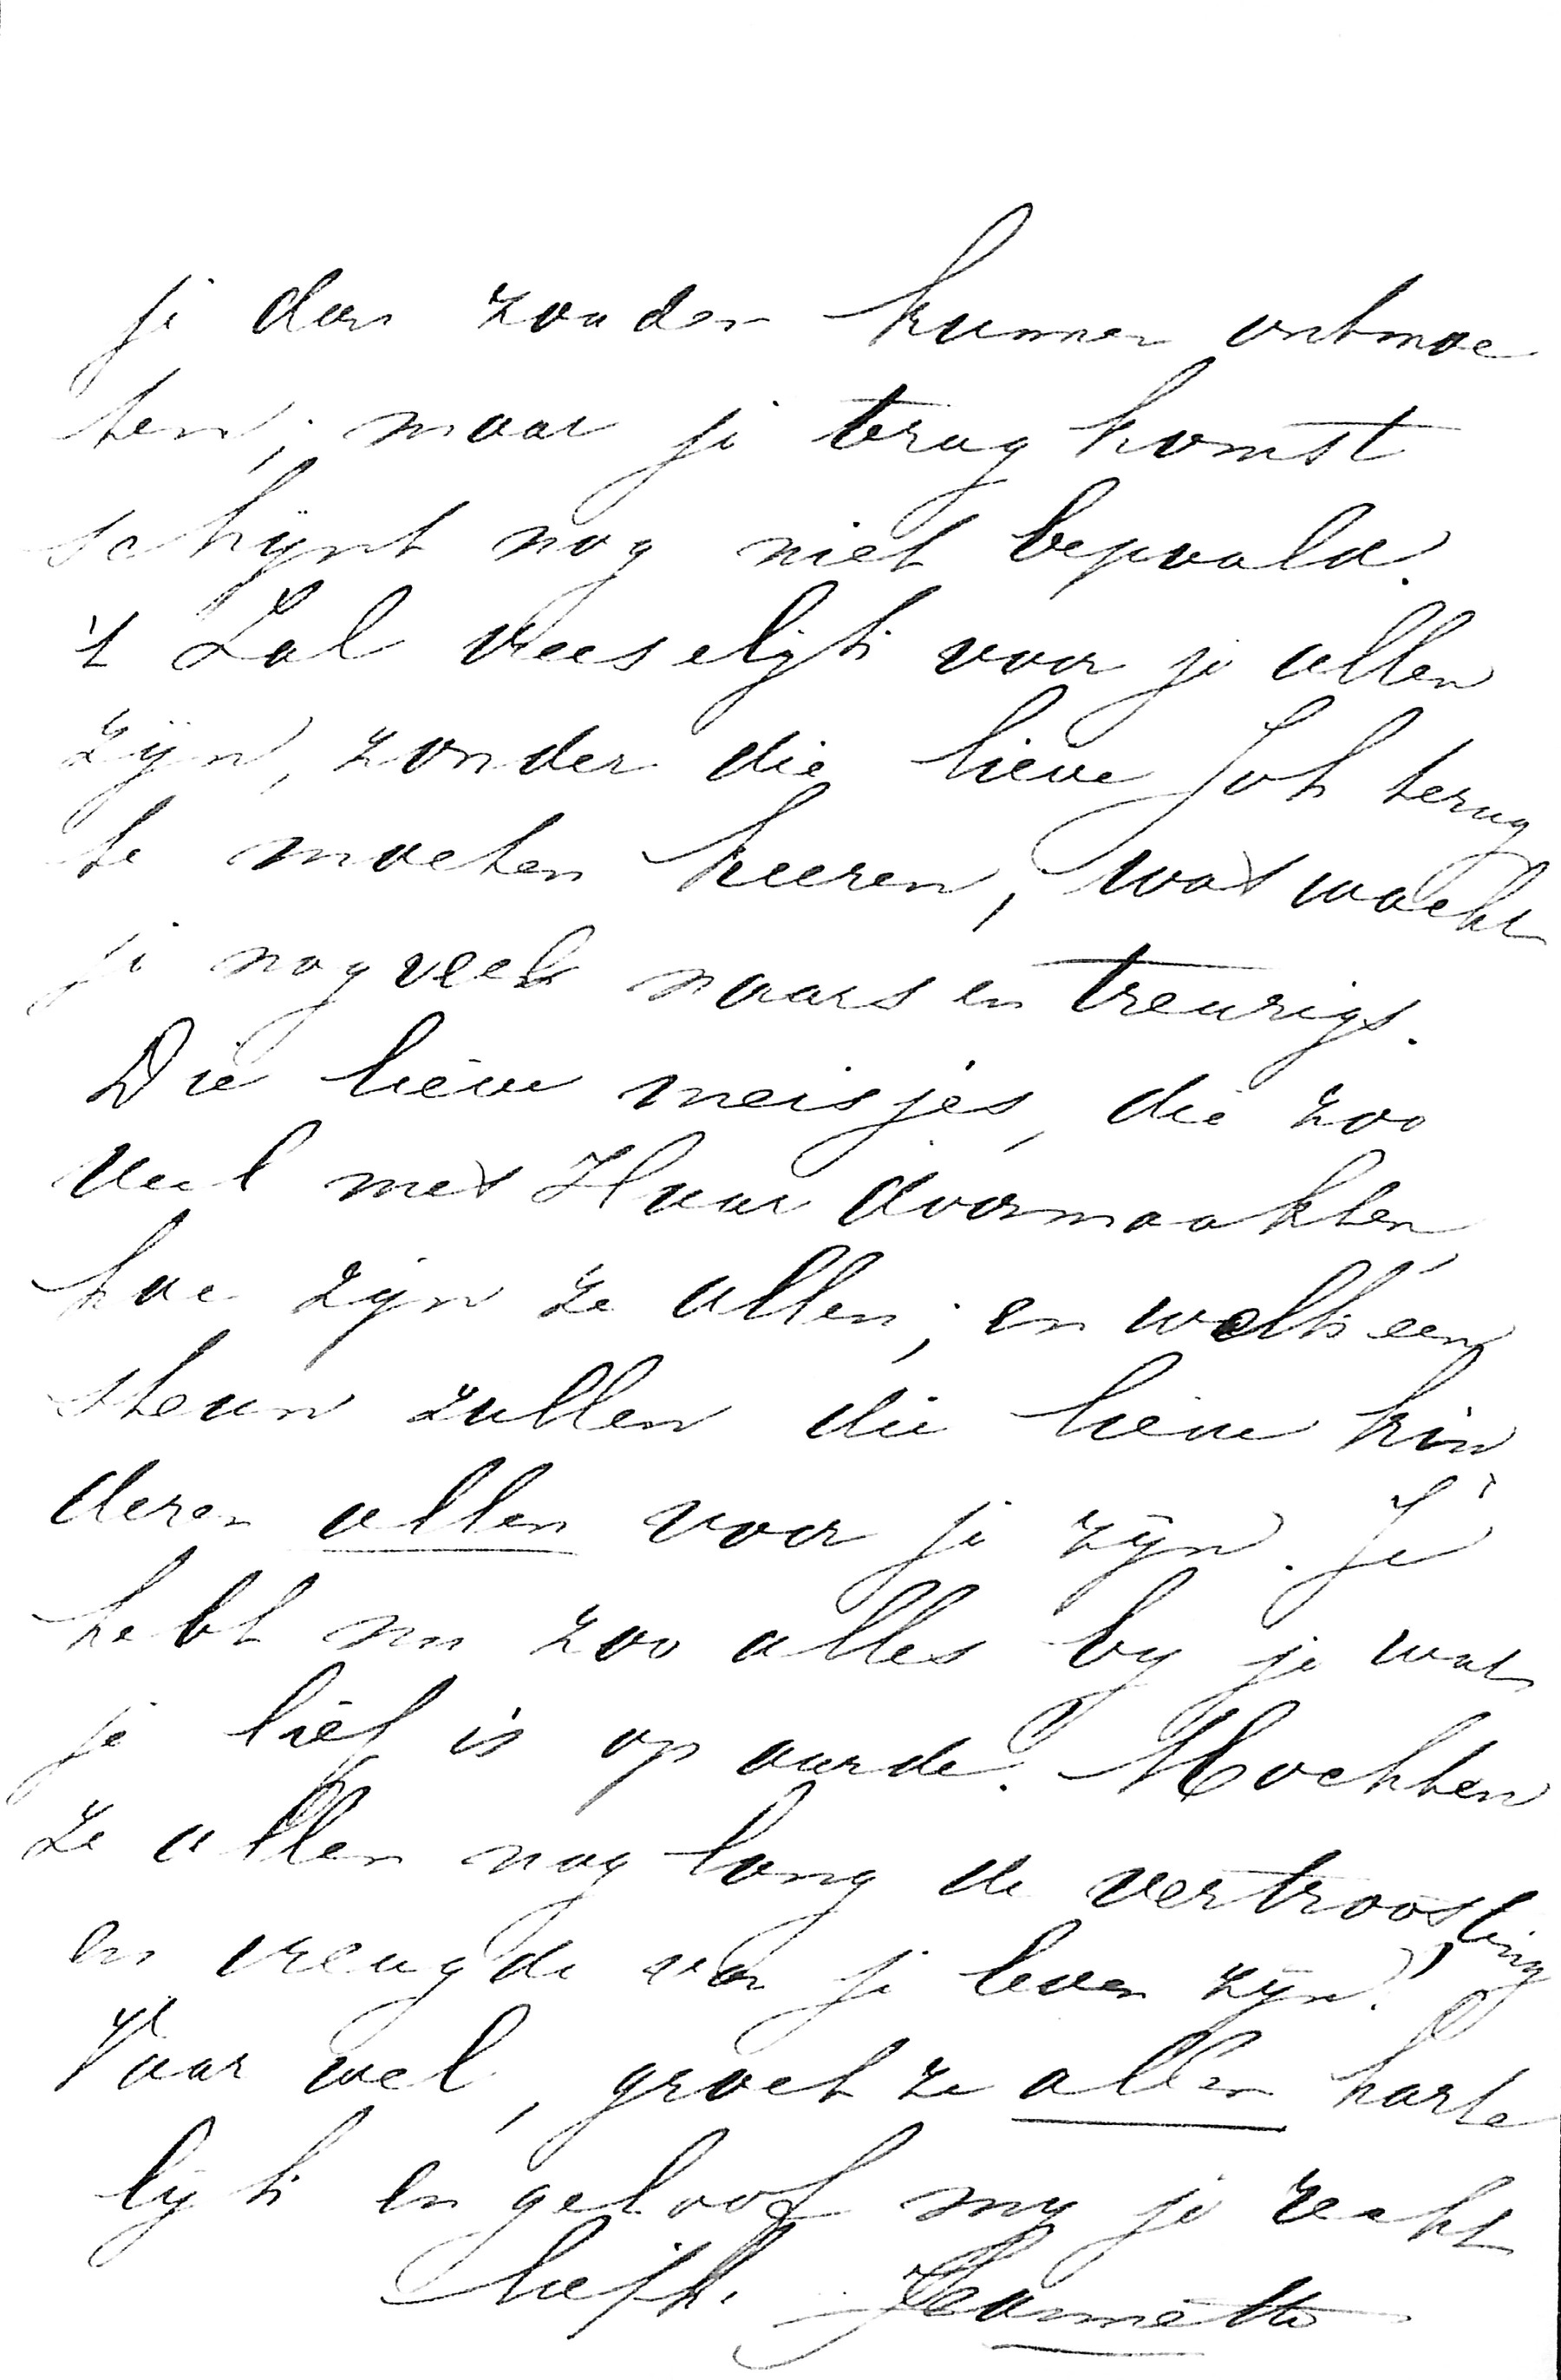 je dan zouden kunnen ontmoe
ten; maar je terug komst
schijnt nog niet bepaald.
't Zal vreeselijk voor je allen
zijn, zonder die lieve Joh terug
te moeten keeren, wat wacht
je nog veel naars en treurigs.
Die lieve meisjes, die zoo
veel met Haar doormaakten,
hoe zijn ze allen; en welk een
steun zullen die lieve kin
deren allen voor je zijn. Je
hebt nu zoo alles by je wat
je lief is op aarde. Mochten
ze allen nog lang de vertroosting
en vreugde van je leven zijn!
Vaar wel, groet ze allen harte
lijk en geloof my je recht
liefh. Jeannette